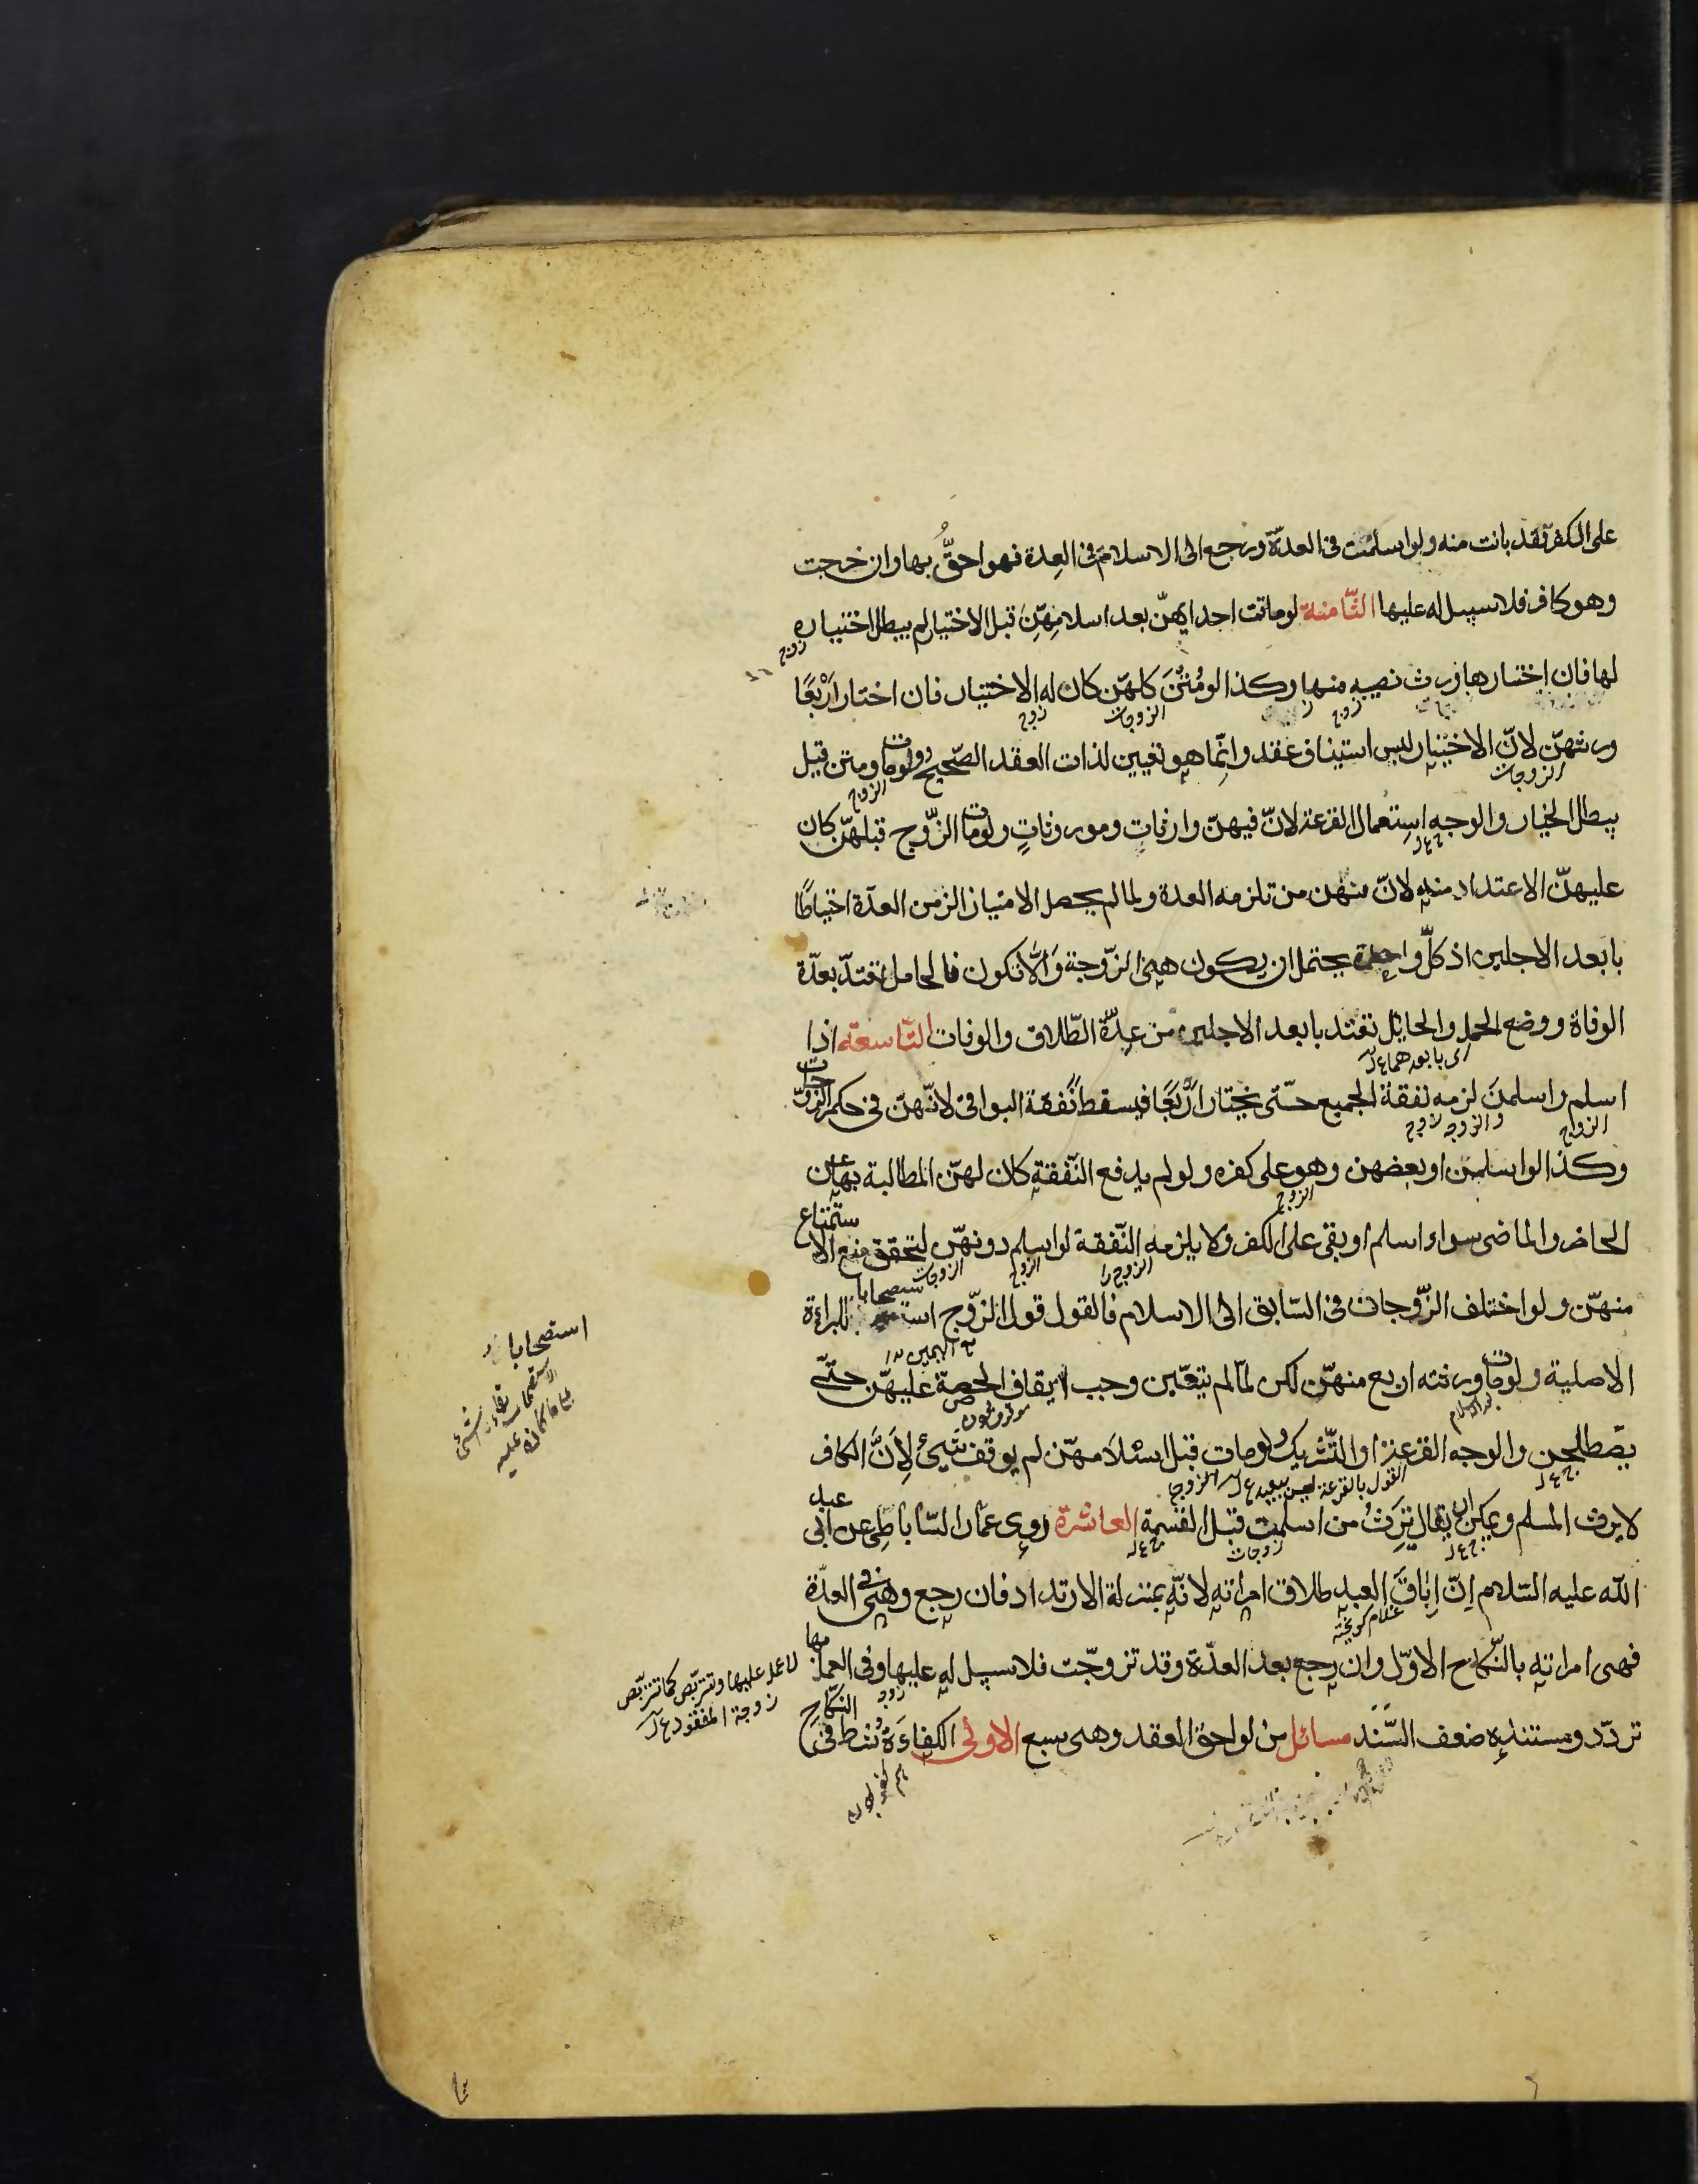 على الكفر فقد بانت منه ولو اسلمت فى العدّة ورجع الى الاسلام فى العِدة فهو احقُّ بها وان خرجت
وهو كافر فلا سبيل له عليها الثّامنة لو ماتت احدايهنّ بعد اسلامِهِنّ قبل الاختيار لم يبطل اختياره
زوج
لها فان اختارها ورث نصيبه منها وكذا لو مُتْنَ كلهنّ كان له الاختيار فان اختار اَرْبَعًا
زوج الزوجات زوج
ورثهنّ لانّ الاختيار ليس استيناف عقد وانّما هو تعيين لذات العقد الصّحيح ولو مات ومتن قيل
الزوجات الزوج
يبطل الخيار والوجه استعمال القرعة لانّ فيهنّ وارثاتٍ وموروثاتٍ ولو مات الزّوج قبلهنّ كان
ج ع ل
عليهنّ الاعتداد منه لانّ منهن من تلزمه العدة ولما لم يحصل الامتياز الزمن العدّة احتياطًا
بابعد الاجلين اذ كلّ واحدة يحتمل ان يكون هى الزّوجة وَالّا تكون فالحامل تعتدّ بعدّة
الوفاة ووضع الحمل والحائل تعتد بابعد الاجلين من عِدّة الطّلاق والوفات التّاسعة اذا
اى بابعدهما ع ل
اسلم واسلمنَ لزمه نفقة الجميع حتّى يختار اَرْبَعًا فيسقط نَفقة البواقى لانّهنّ فى حكم الزّوجات
الزوج والزوجه زوج
وكذا لو اسلمن او بعضهن وهو على كفره ولو لم يدفع النّفقة كان لهنّ المطالبة بها عن
الزوج
الحاضر والماضى سواء اسلم او بقى على الكفر ولا يلزمه النّفقة لو اسلم دونهنّ لتحقق منع الاستمتاع
الزوج را الزوج الزوجات
منهنّ ولو اختلف الزّوجان فى السّابق الى الاسلام فالقول قول الزّوج استصحابا للبراءة
مع اليمين
الاصلية ولو مات ورثته اربع منهنّ لكن لمّا لم يتعّين وجب ايقاف الحصة عليهنّ حتّى
بعد الاسلام
يصّطلحن والوجه القرعة او التّشريك ولو مات قبل اسْلَامهنّ لم يوقف شيئ لِاَنَّ الكافر
ج ع ل القول بالقرعة ليس ببعيد ع ل الزوج
لا يرث المسلم ويمكن ان يقال تَرِثُ من اسلمت قبل القسمة العاشرة روى عمّار السّاباطى عن ابى عبد
ج ع ل زوجات ج ع ل
الله عليه السّلام اِنّ اِبَاقَ العبد طلاق امراته لانّه بمنزلة الارتداد فان رجع وهى فى العدّة
غلام كريخته
فهى امراته بالنّكاح الاوّل وان رجع بعد العدّة وقد تزوجّت فلا سبيل له عليها وفى العمل بها
زوج
تردّد ومستنده ضعف السّند مسائل من لواحق العقد وهى سبع الاولى الكفاءَةُ شرط فى النّكاح
هم كفو بودن
استصحابا
لا عمل عليها وتتربّص كما تتربّص
زوجة المفقود ع ل